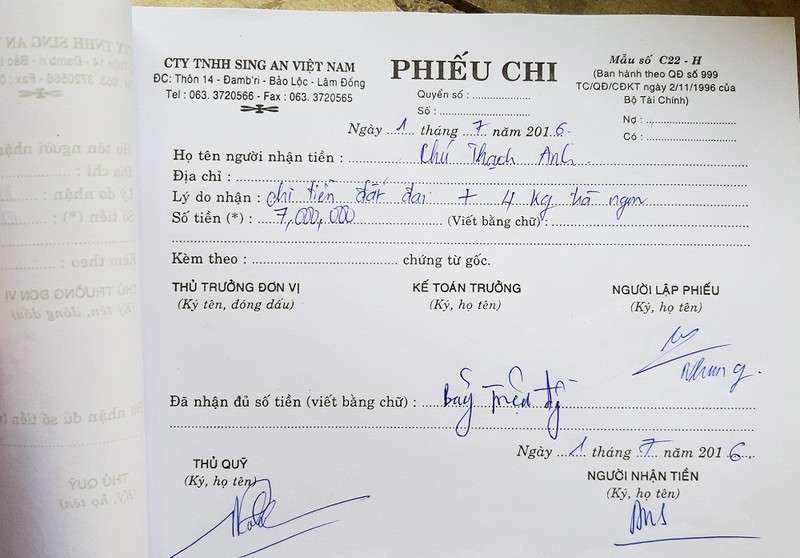 CTY TNHH SING AN VIỆT NAM
ĐC: Thôn 14 - Đamb'ri - Bảo Lộc - Lâm Đồng
Tel : 063. 3720566 - Fax : 063. 3720565
PHIẾU CHI
Quyển số : ....................
Số : ..............................
Mẫu số C22 - H
(Ban hành theo QĐ số 999
TC/QĐ/CĐKT ngày 2/11/1996 của
Bộ Tài Chính)
Nợ : ..............................
Có : ..............................
Ngày 1 tháng 7 năm 2016
Họ tên người nhận tiền : Chú Thạch Anh
Địa chỉ : ..............................
Lý do nhận : chi tiền đất đai + 4 kg trà ngon
Số tiền (*) : 7,000,000 (Viết bằng chữ) : ....................
Kèm theo : .............................. chứng từ gốc.
THỦ TRƯỞNG ĐƠN VỊ KẾ TOÁN TRƯỞNG NGƯỜI LẬP PHIẾU
(Ký tên, đóng dấu) (Ký, họ tên) (Ký, họ tên)
Nhung.
Đã nhận đủ số tiền (viết bằng chữ) : Bảy triệu đ
Ngày 1 tháng 7 năm 2016
THỦ QUỸ NGƯỜI NHẬN TIỀN
(Ký, họ tên) (Ký, họ tên)